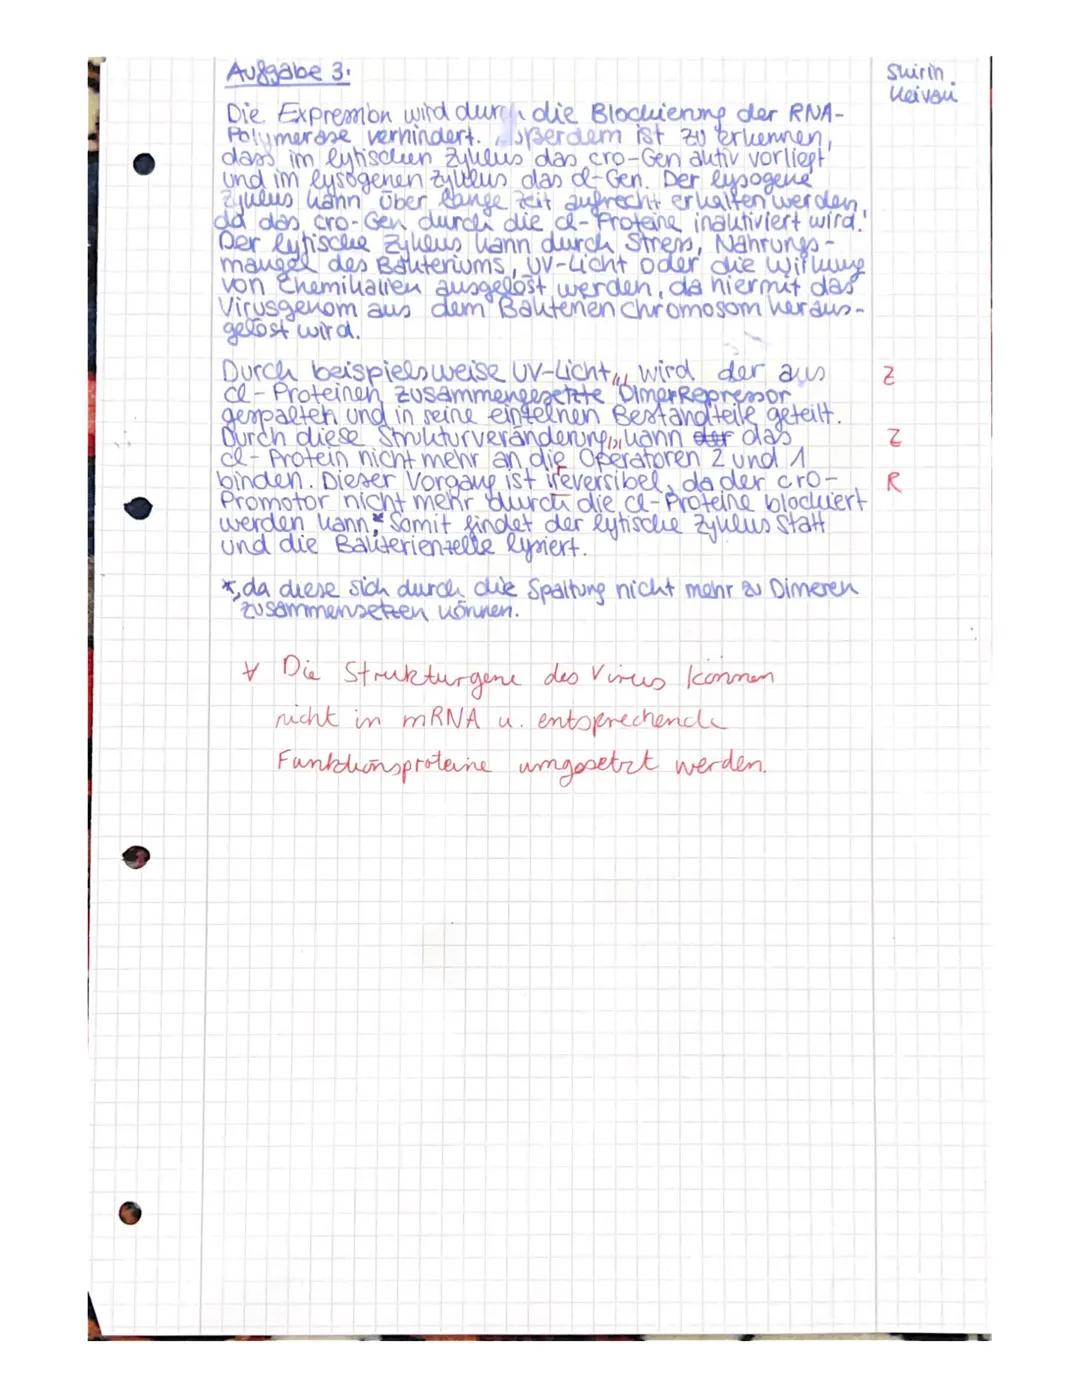 Aufgabe 3:
Shirin
Keivan
Die Expression wird durch die Blockierung der RNA-
Polymerase verhindert. Außerdem ist zu erkennen,
dass im lytischen Zyklus das cro-Gen aktiv vorliegt
und im lysogenen Zyklus das cl-Gen. Der lysogene
Zyklus kann über lange Zeit aufrecht erhalten werden,
da das cro-Gen durch die cl-Proteine inaktiviert wird.
Der lytische Zyklus kann durch Stress, Nahrungs-
mangel des Bakteriums, UV-Licht oder die Wirkung
von Chemikalien ausgelöst werden, da hiermit das
Virusgenom aus dem Bakterienchromosom heraus-
gelöst wird.
Durch beispielsweise UV-Licht, wird der aus Z
cl-Proteinen zusammengesetzte Dimer Repressor
gespalten und in seine einzelnen Bestandteile geteilt.
Durch diese Strukturveränderung, kann der das Z
cl-Protein nicht mehr an die Operatoren 2 und 1
binden. Dieser Vorgang ist ireversibel, da der cro- R
Promotor nicht mehr durch die cl-Proteine blockiert
werden kann.* Somit findet der lytische Zyklus statt
und die Bakterienzelle lysiert.
*, da diese sich durch die Spaltung nicht mehr zu Dimeren
zusammensetzen können.
Die Strukturgene des Virus können
nicht in mRNA u. entsprechende
Funktionsproteine umgesetzt werden.